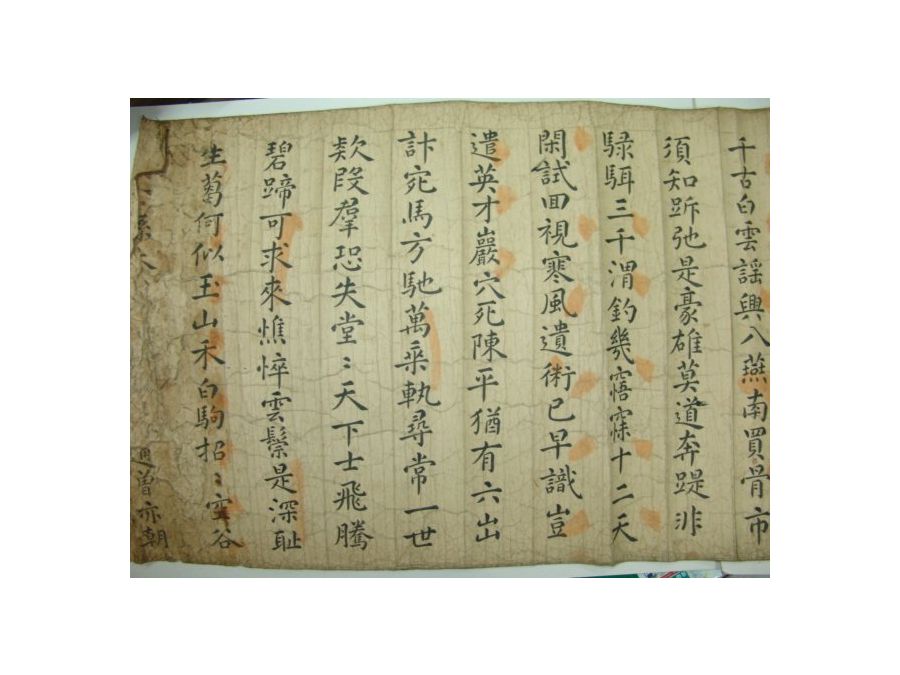 千古白雲謠興八燕南買骨市
須知跅弛是豪雄莫道奔踶非
騄駬三千渭釣幾窹寐十二天
閑試回視寒風遺術已早識豈
遣英才巖穴死陳平猶有六出
計宛馬方馳萬乘執尋常一世
欵段羣恐失堂〻天下士飛騰
碧蹄可求來憔悴雲鬃是深恥
生蒭何似玉山禾白駒招〻空谷